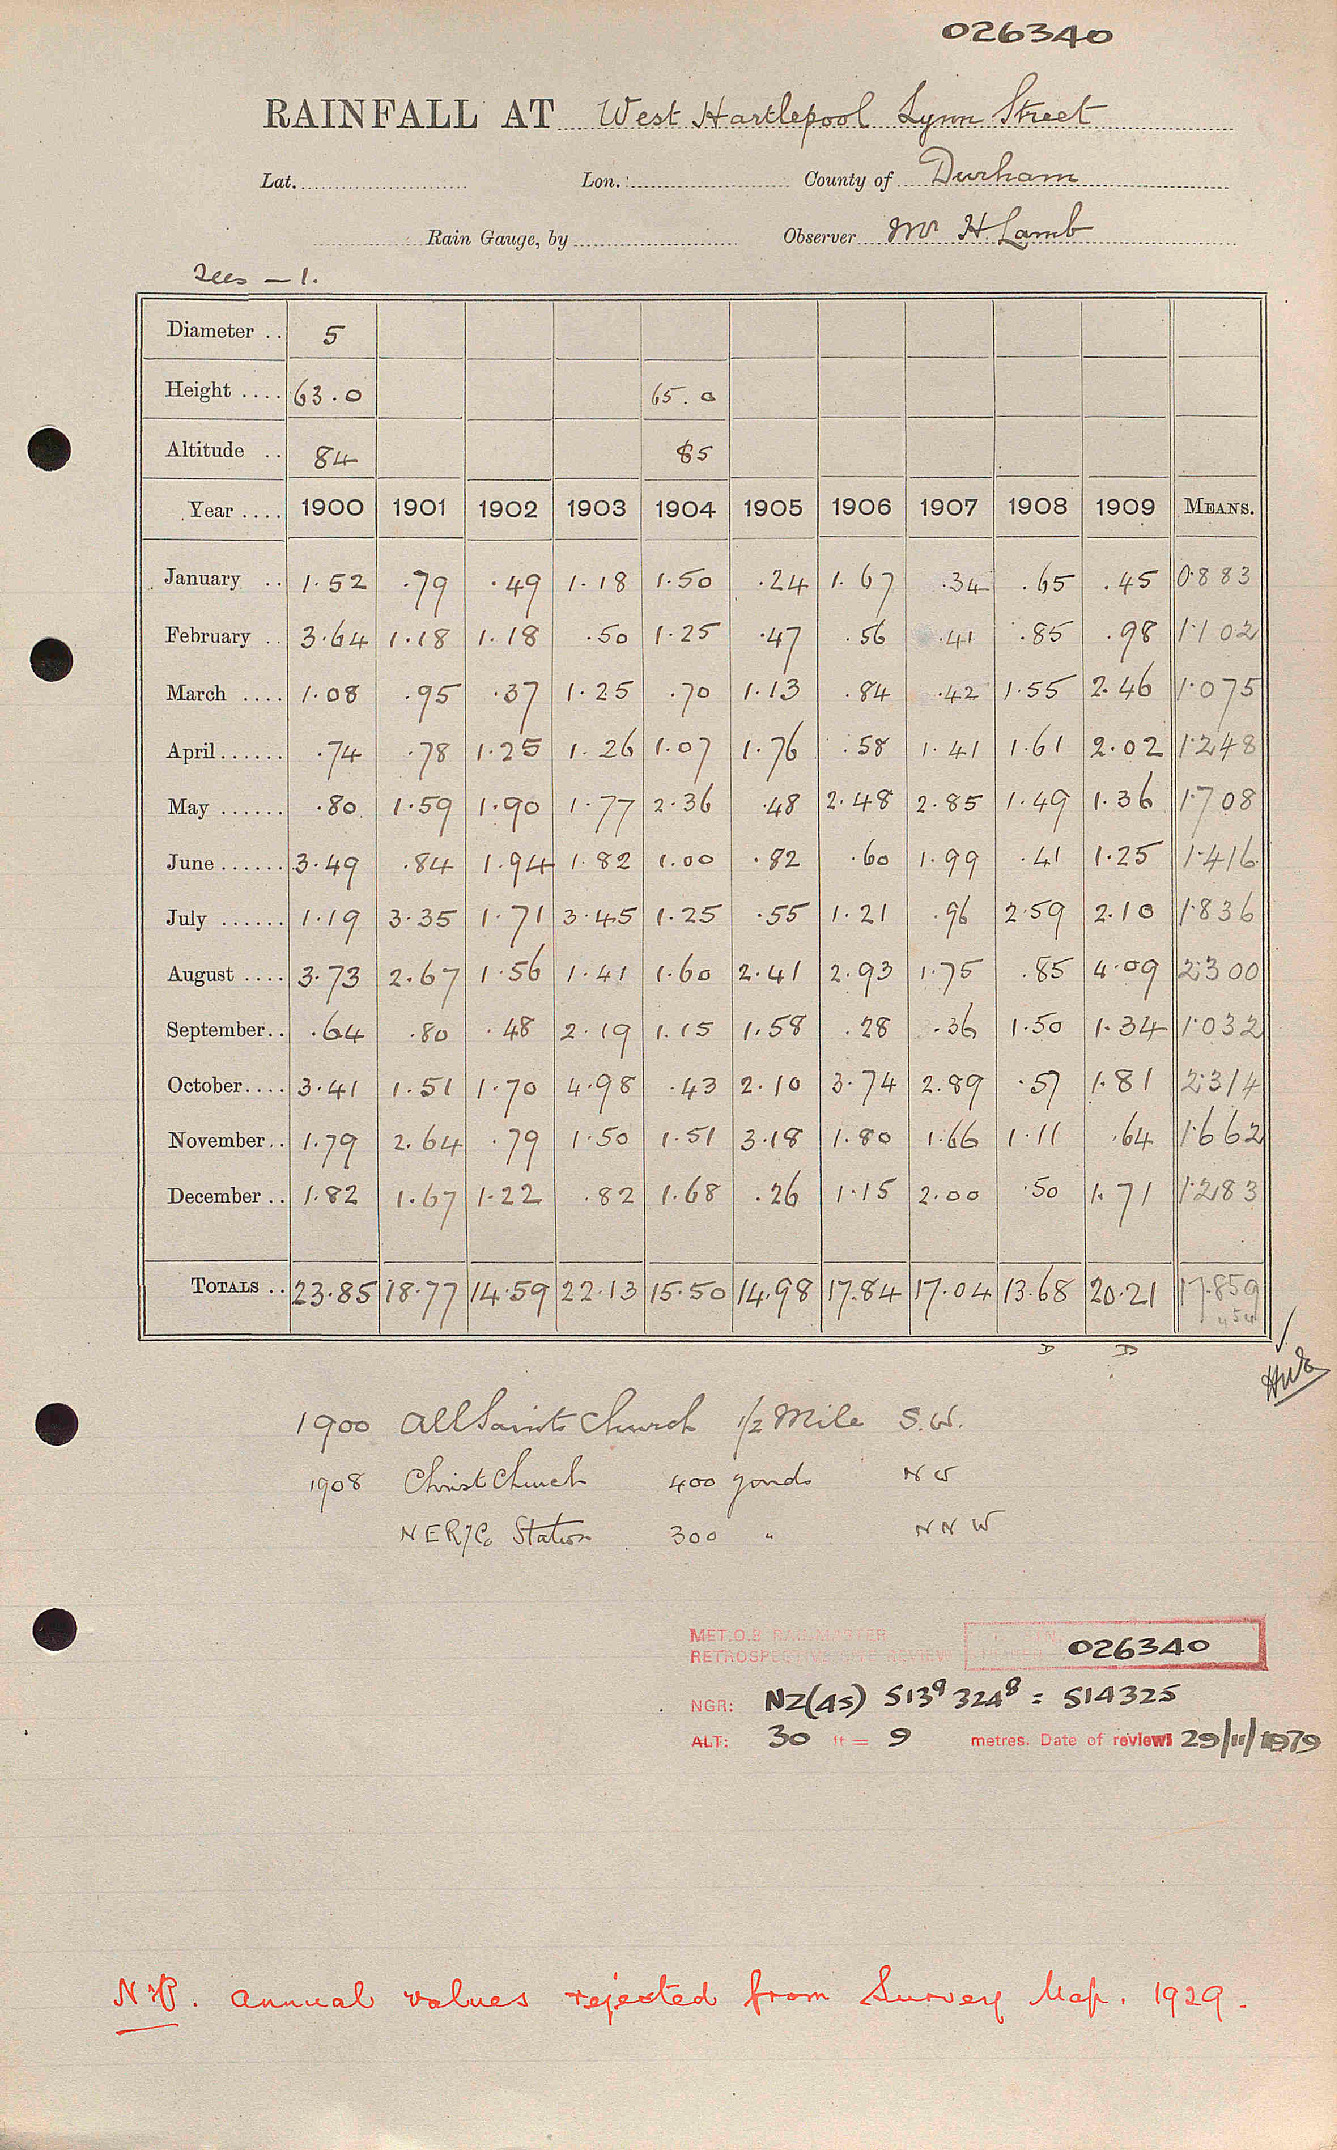 026340
RAINFALL AT West Hartlepool Lynn Street
Lat. Lon. County of Durham
Rain Gauge, by Observer Mr H. Lamb
Tees - 1.
Diameter .. 5
Height .... 63.0 65.0
Altitude .. 84 85
Year .... 1900 1901 1902 1903 1904 1905 1906 1907 1908 1909 MEANS.
January .. 1.52 .79 .49 1.18 1.50 .24 1.67 .34 .65 .45 0.883
February .. 3.64 1.18 1.18 .50 1.25 .47 .56 .41 .85 .98 1.102
March .... 1.08 .95 .37 1.25 .70 1.13 .84 .42 1.55 2.46 1.075
April ...... .74 .78 1.25 1.26 1.07 1.76 .58 1.41 1.61 2.02 1.248
May ...... .80 1.59 1.90 1.77 2.36 .48 2.48 2.85 1.49 1.36 1.708
June ...... 3.49 .84 1.94 1.82 1.00 .82 .60 1.99 .41 1.25 1.416
July ...... 1.19 3.35 1.71 3.45 1.25 .55 1.21 .96 2.59 2.10 1.836
August .... 3.73 2.67 1.56 1.41 1.60 2.41 2.93 1.75 .85 4.09 2.300
September .. .64 .80 .48 2.19 1.15 1.58 .28 .36 1.50 1.34 1.032
October .... 3.41 1.51 1.70 4.98 .43 2.10 3.74 2.89 .57 1.81 2.314
November .. 1.79 2.64 .79 1.50 1.51 3.18 1.80 1.66 1.11 .64 1.662
December .. 1.82 1.67 1.22 .82 1.68 .26 1.15 2.00 .50 1.71 1.283
TOTALS .. 23.85 18.77 14.59 22.13 15.50 14.98 17.84 17.04 13.68 20.21 17.859
D D
1900 All Saints Church 1/2 Mile S.W.
1908 Christ Church 400 yards NW
NER/Co Station 300 " NNW
MET.O.8 RAINMASTER
RETROSPECTIVE SITE REVIEW 026340
NGR: NZ(45) 513⁹ 324⁸ = 514325
ALT: 30 ft = 9 metres. Date of review: 29/11/1979
N.B. annual values rejected from Survey Map. 1929.